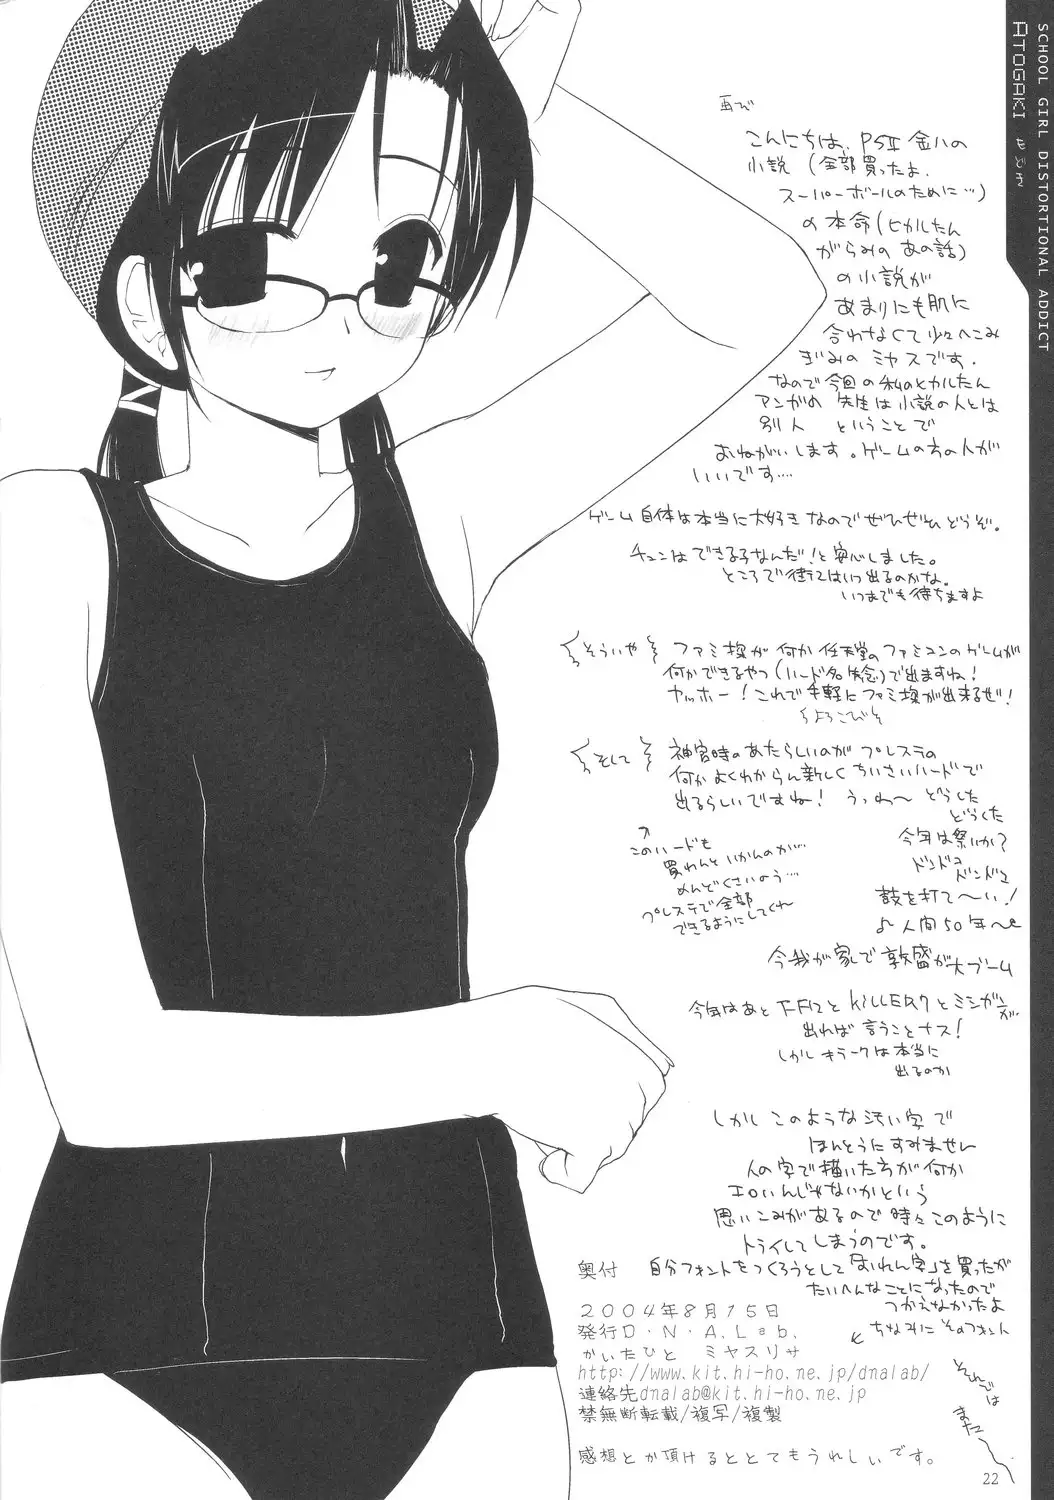 SCHOOL GIRL DISTORTIONAL ADDICT
ATOGAKI
再び
こんにちは、PSⅡ 金八の
小説（全部買ったよ.
スーパーボールのために…）
の本命（ヒカルたん
がらみの あの話）
の小説が
あまりにも肌に
合わなくて少々へこみ
ぎみの ミヤスです.
なので今回の私のヒカルたん
アンがの 先生は小説の人とは
別人 ということで
おねがいします。ゲームの方の人が
いいです....
ゲーム自体は本当に大好きなのでぜひぜひどうぞ。
チュンはできる子なんだ！と安心しました。
ところで待てはいつ出るのかな.
いつまでも待ちますよ
そういや ファミ探が何か任天堂のファミコンのゲームが
何かできるやつ（ハード名失念）で出ますね！
ヤッホー！これで手軽にファミ探が出来るぜ！
よろこび
そして 神宮時のあたらしいのがプレステの
何かよくわからん新しくちいさいハードで
出るらしいですね！ うっわ〜 どうした
どうくた
↑
このハードも
買わんといかんのが…
めんどくさいのう…
プレステで全部
できるようにしてくれ
今年は祭いか？
ドンドコ
ドンドコ
鼓を打て〜い！
♪人間50年〜
今我が家で敦盛が大ブーム
今年はあと FF12と KILLER7とミンガ
出れば言うことナス！
しかしキラー7は本当に
出るのか
しかしこのような汚い字で
ほんとうにすみません
人の字で描いた方が何か
エロいんじゃないかという
思いこみがあるので時々このように
トライしてしまうのです。
奥付
自分フォントをつくろうとして「おれん字」を買ったが
たいへんなことになったので
つかえなかったよ
ちなみに そのフォント
２００４年８月１５日
発行Ｄ・Ｎ・Ａ.Ｌａｂ.
かいたひと ミヤスリサ
http://www.kit.hi-ho.ne.jp/dnalab/
連絡先dnalab@kit.hi-ho.ne.jp
禁無断転載/複写/複製
感想とか頂けるととてもうれしいです。
それでは
また
22